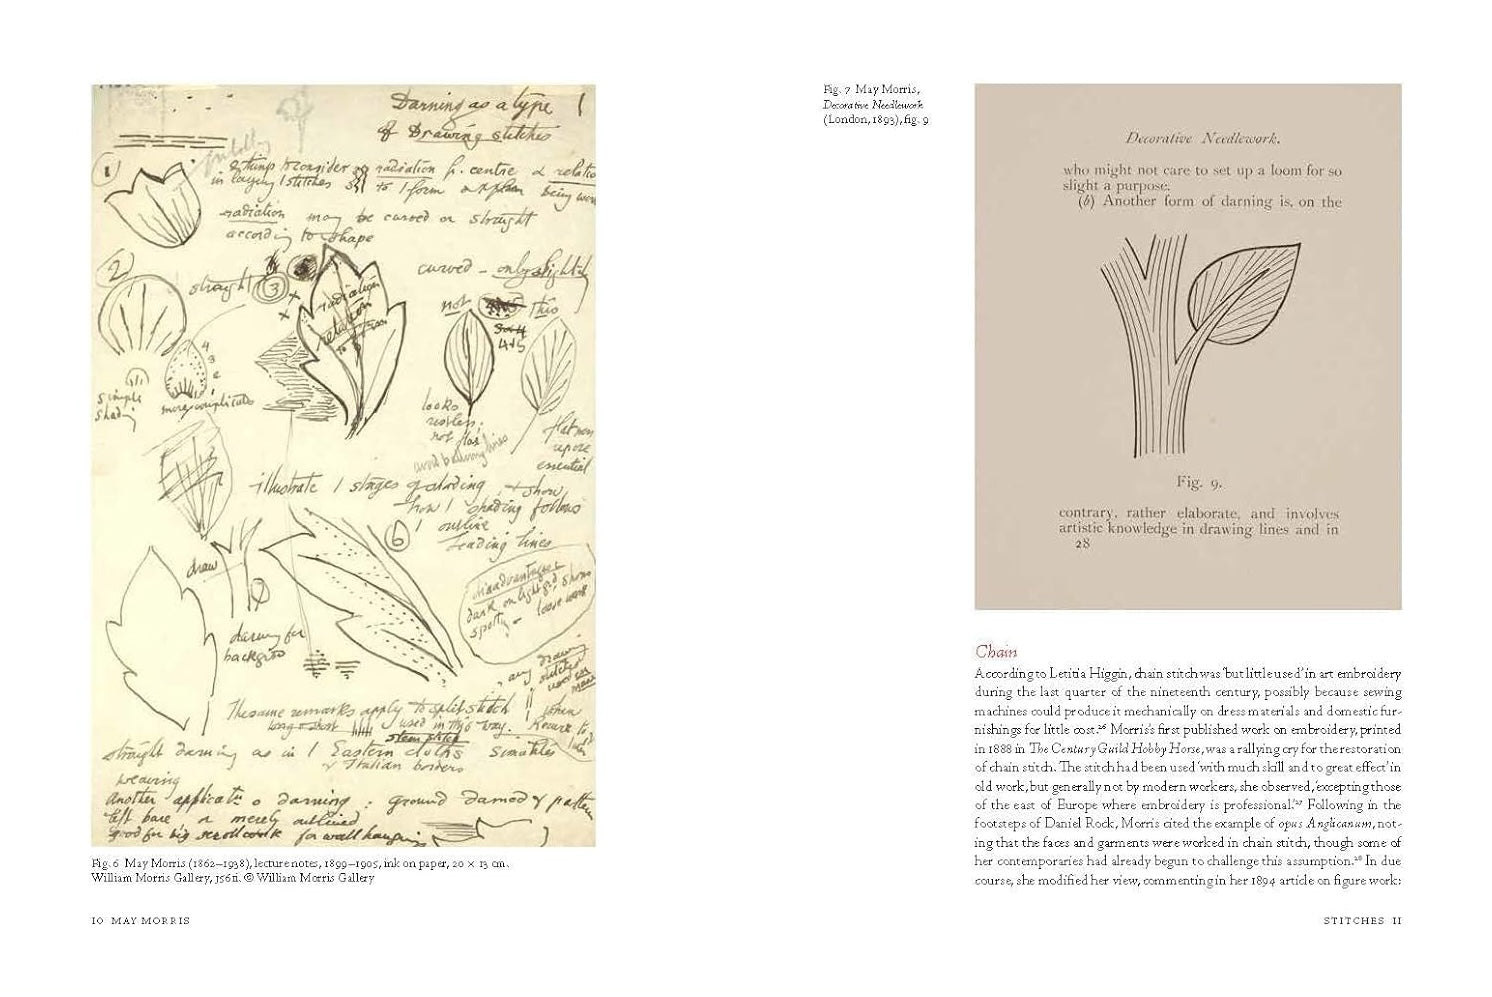 Darning as a type
of Drawing stitches
1
2 things to consider radiation fr. centre & relation
in laying stitches to form being
radiation may be curved or straight
according to shape
2
straight
3
curved – only slightly
not this
radiation
4
3
2
1
4 & 5
simple
shading
more complicated
looks
restless;
not flat
avoid
repose
essential
illustrate stages of shading & show
how shading follows
outline
leading lines
6
draw
disadvantages
dark on light shows
spotty – loose
darning for
any drawing
The same remarks apply to split stitch when
long & short used in this way.
stem stitch
straight darning as in Eastern cloths simulates
& Italian borders
weaving
Another application darning: ground darned & pattern
left bare or merely outlined
good for big scroll work for wall hanging
Fig. 6 May Morris (1862–1938), lecture notes, 1899–1905, ink on paper, 20 × 13 cm.
William Morris Gallery, J561i. © William Morris Gallery
10 MAY MORRIS
Fig. 7 May Morris,
Decorative Needlework
(London, 1893), fig. 9
Decorative Needlework.
who might not care to set up a loom for so
slight a purpose.
(b) Another form of darning is, on the
Fig. 9.
contrary, rather elaborate, and involves
artistic knowledge in drawing lines and in
28
Chain
According to Letitia Higgin, chain stitch was ‘but little used’ in art embroidery
during the last quarter of the nineteenth century, possibly because sewing
machines could produce it mechanically on dress materials and domestic fur-
nishings for little cost.²⁶ Morris’s first published work on embroidery, printed
in 1888 in The Century Guild Hobby Horse, was a rallying cry for the restoration
of chain stitch. The stitch had been used ‘with much skill and to great effect’ in
old work, but generally not by modern workers, she observed, ‘excepting those
of the east of Europe where embroidery is professional.’²⁷ Following in the
footsteps of Daniel Rock, Morris cited the example of opus Anglicanum, not-
ing that the faces and garments were worked in chain stitch, though some of
her contemporaries had already begun to challenge this assumption.²⁸ In due
course, she modified her view, commenting in her 1894 article on figure work:
STITCHES 11